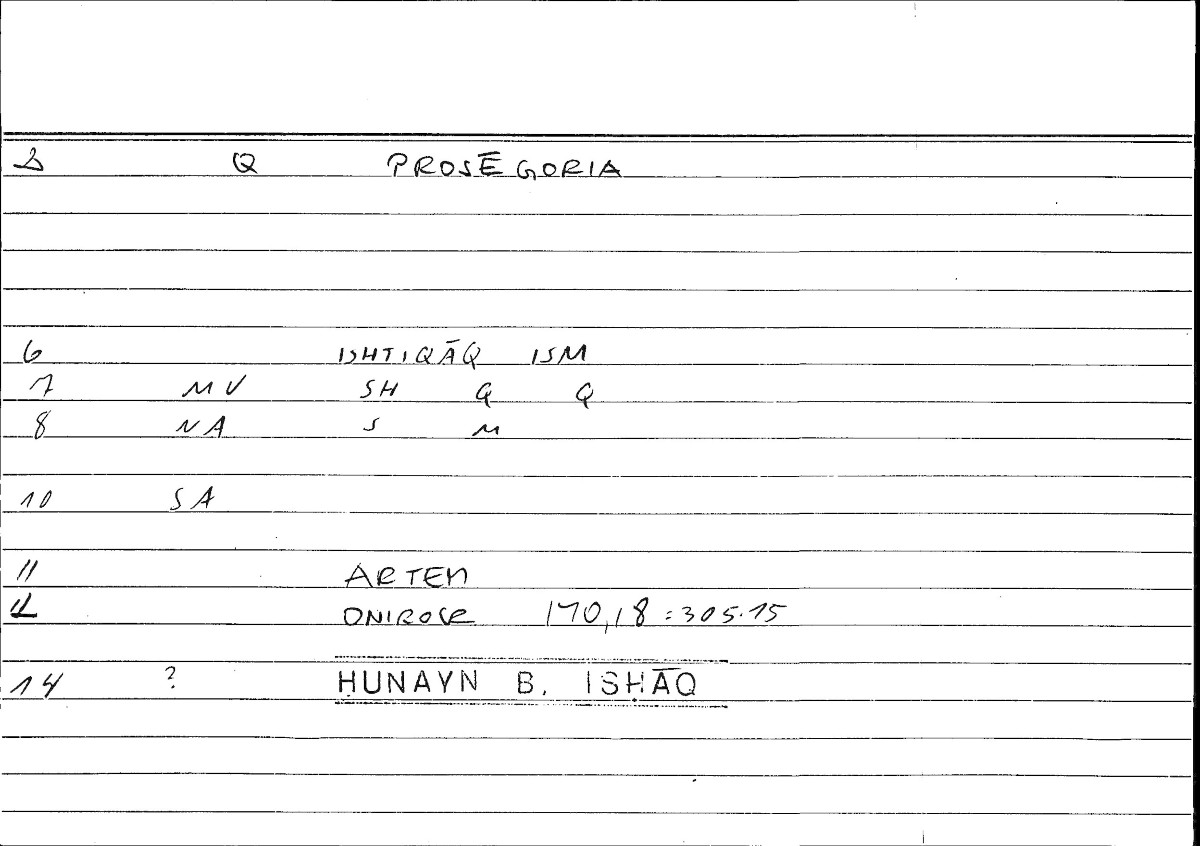 2 Q PROSĒGORIA
6 ISHTIQĀQ ISM
7 MV SH Q Q
8 NA S M
10 SA
11 ARTEM
12 ONIROCR 170,18=305.15
14 ? ḤUNAYN B. ISḤĀQ